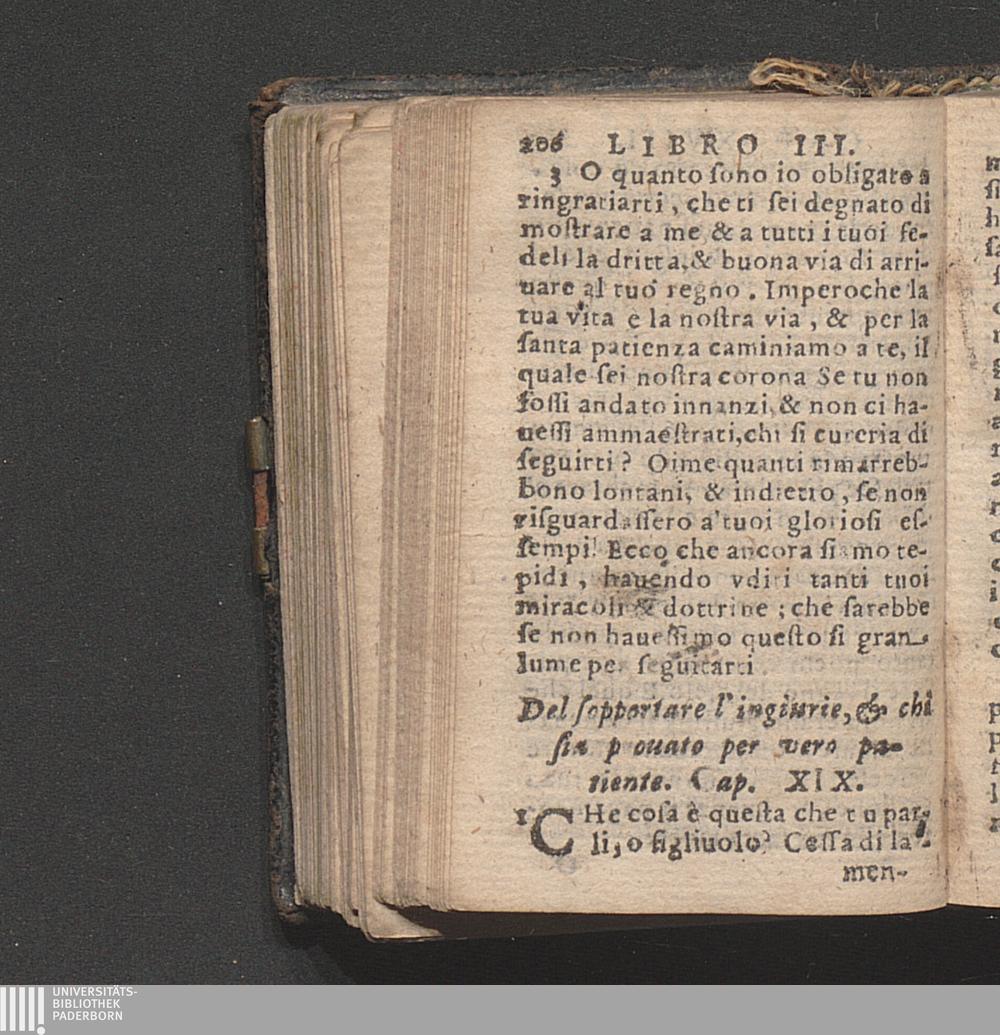 206 LIBRO III.
3 O quanto ſono io obligato a
ringratiarti, che ti ſei degnato di
moſtrare a me & a tutti i tuoi fe-
deli la dritta, & buona via di arri-
uare al tuo regno. Imperoche la
tua vita e la noſtra via, & per la
ſanta patienza caminiamo a te, il
quale ſei noſtra corona Se tu non
foſſi andato innanzi, & non ci ha-
ueſſi ammaeſtrati, chi ſi cureria di
ſeguirti? Oime quanti rimarreb-
bono lontani, & indietro, ſe non
riſguardaſſero a'tuoi glorioſi eſ-
ſempi! Ecco che ancora ſiamo te-
pidi, hauendo vditi tanti tuoi
miracoli & dottrine; che ſarebbe
ſe non haueſſimo queſto ſi gran
lume per ſeguitarti.
Del ſopportare l'ingiurie, & chi
ſia prouato per vero pa-
tiente. Cap. XIX.
1 CHe coſa è queſta che tu par-
li, o figliuolo? Ceſſa di la-
men-
UNIVERSITÄTS-
BIBLIOTHEK
PADERBORN